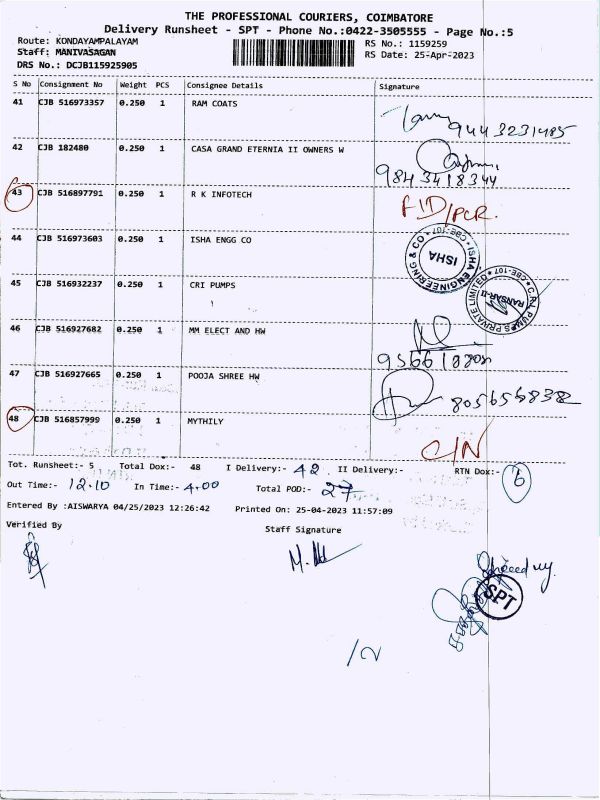 THE PROFESSIONAL COURIERS, COIMBATORE
Delivery Runsheet - SPT - Phone No.:0422-3505555 - Page No.:5
Route: KONDAYAMPALAYAM RS No.: 1159259
Staff: MANIVASAGAN RS Date: 25-Apr-2023
DRS No.: DCJB115925905
S No Consignment No Weight PCS Consignee Details Signature
41 CJB 516973357 0.250 1 RAM COATS
9443231485
42 CJB 182480 0.250 1 CASA GRAND ETERNIA II OWNERS W
9843418344
43 CJB 516897791 0.250 1 R K INFOTECH
44 CJB 516973603 0.250 1 ISHA ENGG CO
ISHA ENGINEERING & CO CBE-107
ISHA
45 CJB 516932237 0.250 1 CRI PUMPS
C.R.I. PUMPS PRIVATE LIMITED CBE-107
46 CJB 516927682 0.250 1 MM ELECT AND HW
47 CJB 516927665 0.250 1 POOJA SHREE HW
48 CJB 516857999 0.250 1 MYTHILY
C/N
Tot. Runsheet:- 5 Total Dox:- 48 I Delivery:- 42 II Delivery:- RTN Dox:- 6
Out Time:- 12.10 In Time:- 4.00 Total POD:- 27
Entered By :AISWARYA 04/25/2023 12:26:42 Printed On: 25-04-2023 11:57:09
Verified By Staff Signature
SPT